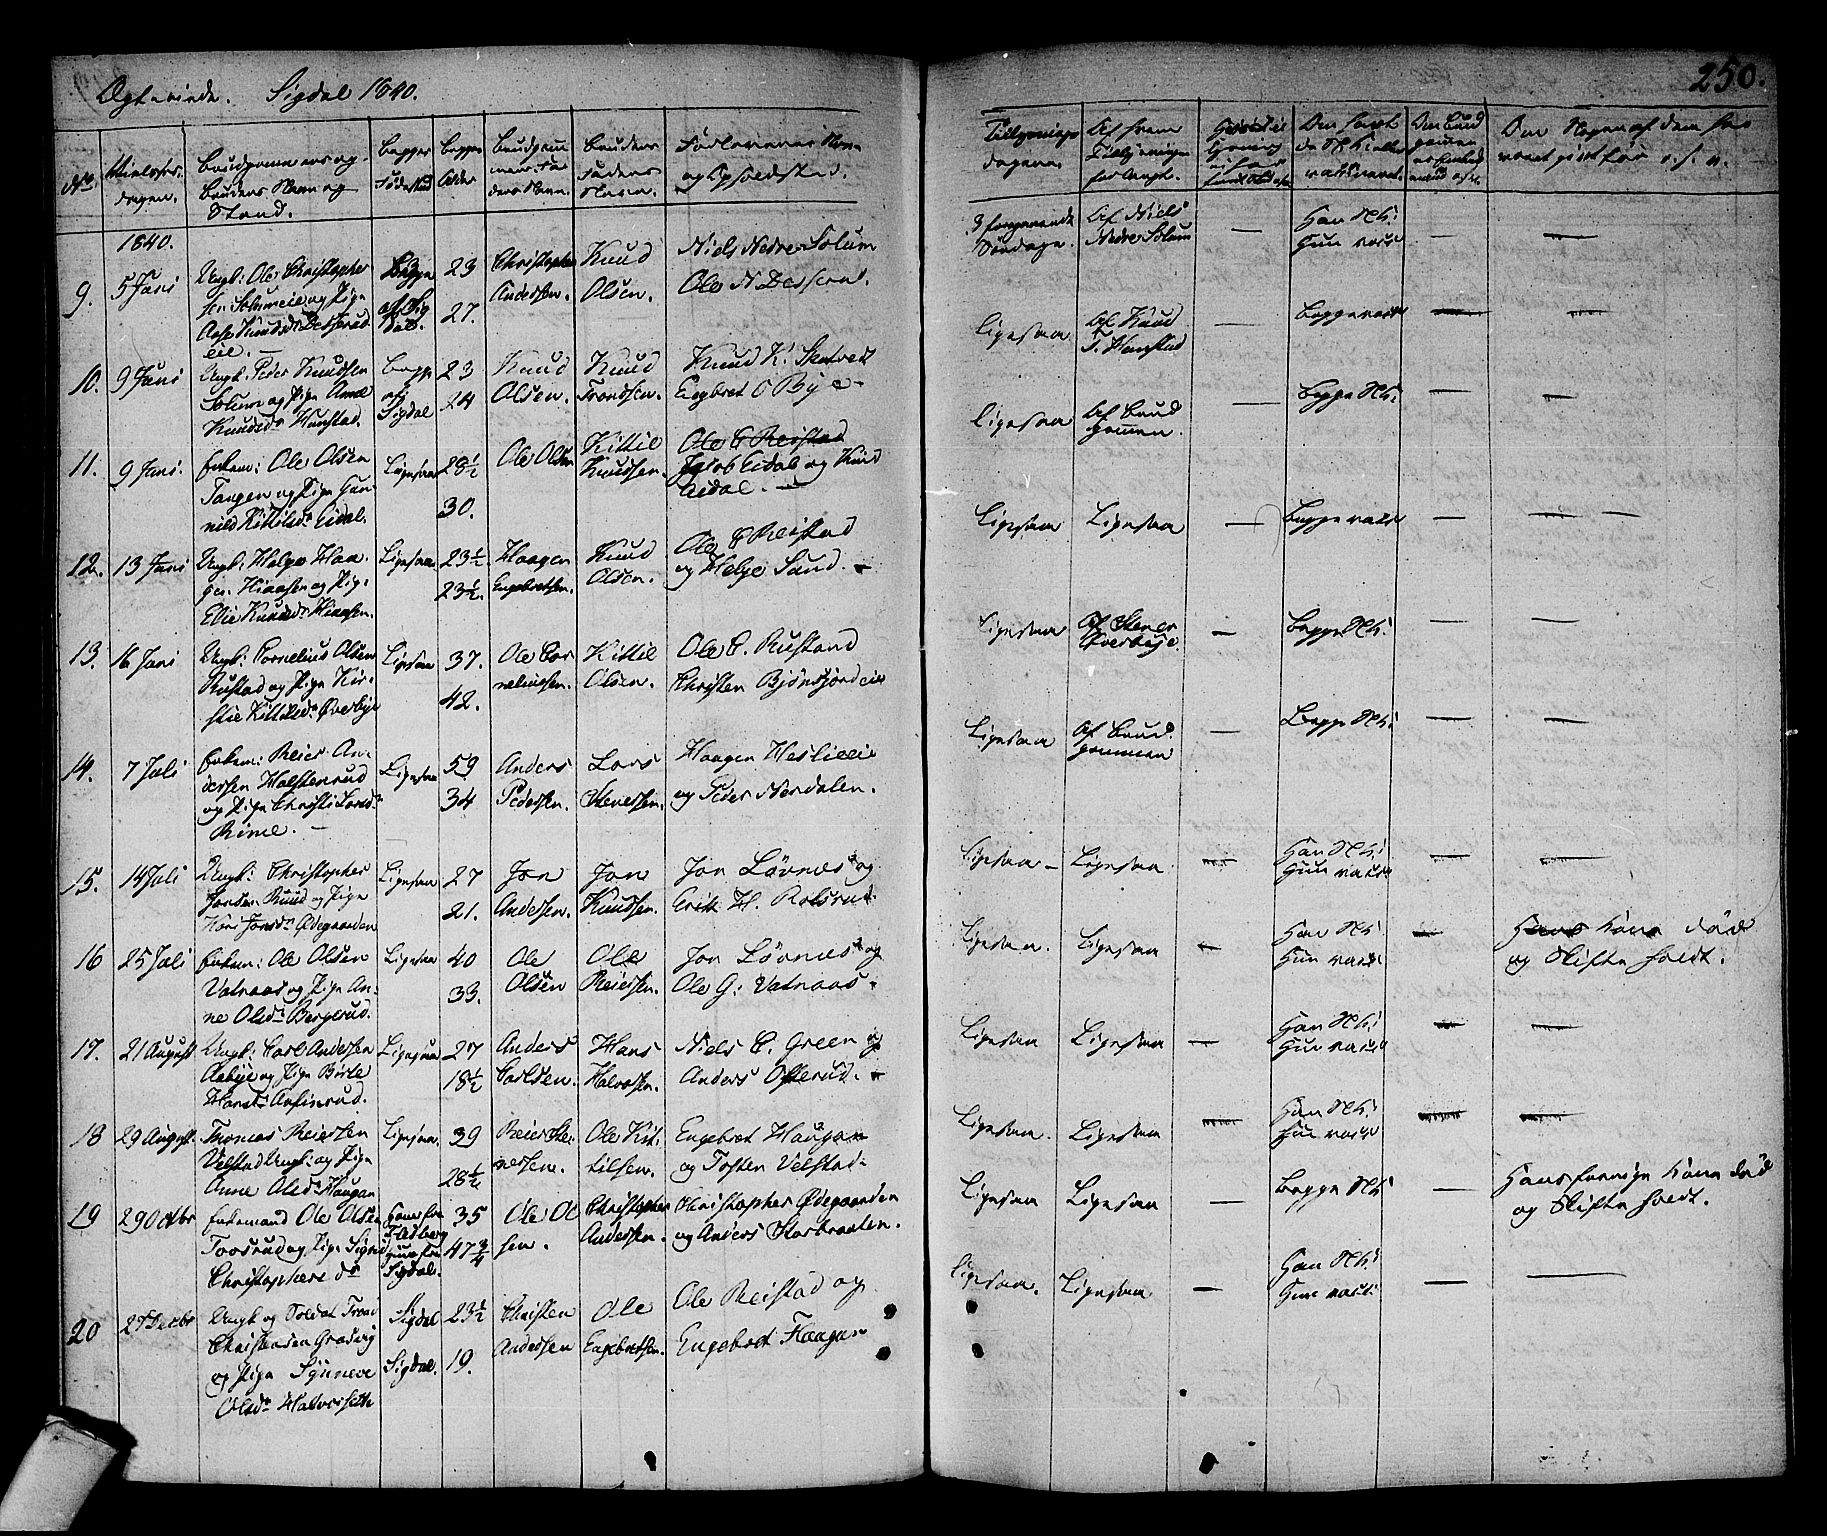 Ægteviede. Sigdal 1840.
No. Vielsesdagen. Brudgommens og Brudens Navn og Stand. Begges Fødested Begges Alder Brudgommens Faders Navn Brudens Faders Navn. Forlovernes Navn og Opholdssted.
1840.
9. 5 Juni
Ungk: Ole Christopher
sen Solumeie og Pige
Aase Knudsdr Desserud
eie. —
Begge
af Sig
dal.
23
27.
Christopher
Andersen.
Knud
Olsen.
Niels Nedre Solum
Ole N Desserud.
10. 9 Juni
Ungk: Peder Knudsen
Solum og Pige Anne
Knudsdr Hanstad.
Begge
af
Sigdal
23
24
Knud
Olsen.
Knud
Trondsen.
Knud K. Skatvedt
Engbret O Bye —
11. 9 Juni.
Enkem: Ole Olsen
Tangen og Pige Gun
nild Kittilsdr Eidal.
Ligesaa
28½
30.
Ole Olsen
Kittil
Knudsen.
Ole E Reistad
Jacob Eidal og Knud
Eidal. —
12. 13 Juni
Ungk: Helge Haa
gens. Hiaasen og Pige
Elie Knudsdr Hiaasen.
Ligesaa
23½
23½.
Haagen
Engebretsen.
Knud
Olsen.
Ole E Reistad
og Helge Sand. —
13. 16 Juni
Ungk: Cornelius Olsen
Rustad og Pige Kir
stie Kittilsdr Øverbye
Ligesaa
37.
42.
Ole Cor
neliusen.
Kittil
Olsen.
Ole C. Rustand
Christen Bjønsjordeie
14. 7 Juli
Enkem: Reier An
dersen Halstenrud
og Pige Christi Larsdr
Rime. —
Ligesaa
59
34
Anders
Pedersen.
Lars
Stenersen.
Haagen Heslieeie
og Peder Nerdalen.
15. 14 Juli
Ungk: Christopher
Jonsen Ruud og Pige
Kari Jonsdr Ødegaarden
Ligesaa
27
21.
Jon
Andersen.
Jon
Knudsen.
Jon Løvnæs og
Erik H. Rolsrud.
16 25 Juli
Enkem: Ole Olsen
Vatnaas og Pige An
ne Olsdr Bergerud.
Ligesaa
40
33.
Ole
Olsen
Ole
Reiersen.
Jon Løvnæs og
Ole G: Vatnaas.
17. 21 August
Ungk: Carl Andersen
Aabye og Pige Birte
Hansdr Anfinrud.
Ligesaa
27
18½
Anders
Carlsen.
Hans
Halvorsen.
Niels C. Green og
Anders Ofterud. —
18 29 August.
Thomas Reiersen
Velstad Ungk: og Pige
Anne Olsdr Haugan
Ligesaa.
39
28½
Reier Ste
nersen.
Ole Kit
tilsen.
Engebret Haugan
og Tosten Velstad.
19 29 Octbr
Enkemand Ole Olsen
Toosrud og Pige Signe
Christophers dr
Han fra
Flesberg
Hun fra
Sigdal.
35
47¾
Ole Ol
sen.
Christopher
Andersen.
Christopher Ødegaarden
og Anders Storbraaten.
20 27 Decbr
Ungk og Soldat Trond
Christensen Grøsvig
og Pige Synneve
Olsdr Halvorseth
Sigdal
Sigdal.
23½
19.
Christen
Andersen
Ole
Engebretsen.
Ole Reistad og
Engebret Haagan
250.
Tillysnings
dagene.
Af hvem
Tillysningen
forlangt.
Den Sand
Om Nogen af dem har
været gift før o. s. v.
3 foregaaende
Søndage.
Af Niels
Nedre Solum
—
Han N. K:
Hun vacc
—
—
Ligesaa
Af Knud
T. Hanstad
—
Begge vacc
—
—
Ligesaa
Af Brud
gommen.
—
Begge N. K:
—
—
Ligesaa
Ligesaa
—
Begge vacc
—
— —
Ligesaa
Af Stener
Øverbye.
—
Begge N. K:
—
—
Ligesaa
Af Brud
gommen
—
Begge N. K:
—
—
Ligesaa —
Ligesaa
—
Han N. K:
Hun vacc
—
—
Ligesaa.
Ligesaa
—
Han N. K:
Hun vacc
—
Hans Kone død
og Skifte holdt.
Ligesaa
Ligesaa
—
Han N. K:
Hun vacc
—
—
Ligesaa.
Ligesaa
—
Han N. K:
Hun vacc
—
—
Ligesaa
Ligesaa
—
Begge N. K:
—
Hans forrige Kone død
og Skifte holdt.
Ligesaa.
Ligesaa
—
Han N. K:
Hun vacc:
—
—